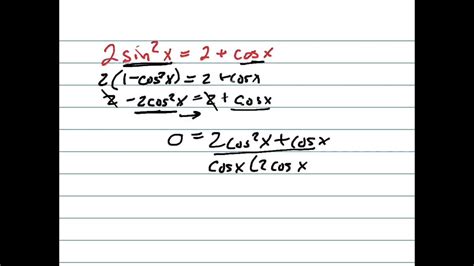 2 sin²x = 2 + cos x
2(1-cos²x) = 2 + cos x
2 - 2cos²x = 2 + cos x
0 = 2cos²x + cos x
cos x (2 cos x